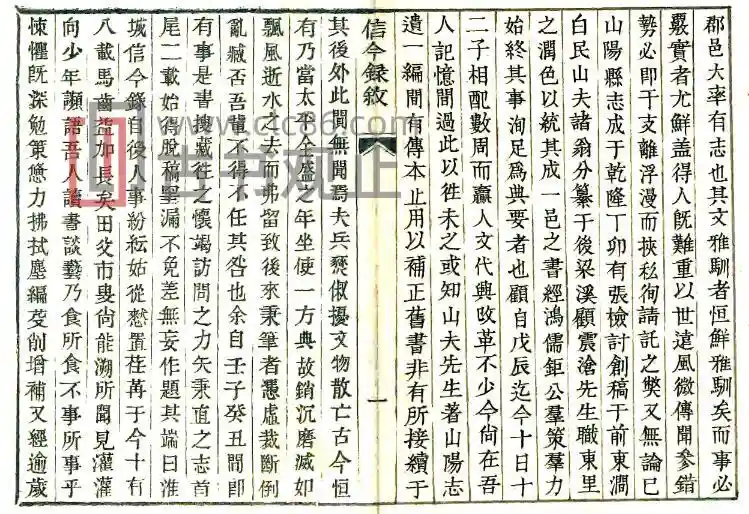 郡邑大率有志也其文雅馴者恒鮮雅馴矣而事必
覈實者尤鮮蓋得人旣難重以世遠風微傳聞參錯
勢必即干支離浮漫而挾私徇請託之獘又無論已
山陽縣志成于乾隆丁卯有張檢討創稿于前東澗
白民山夫諸翁分纂于後梁溪顧震滄先生職東里
之潤色以統其成一邑之書經鴻儒鉅公羣策羣力
始終其事洵足爲典要者也顧自戊辰迄今十日十
二子相配數周而贏人文代興攺革不少今尚在吾
人記憶間過此以徃未之或知山夫先生著山陽志
遺一編間有傳本止用以補正舊書非有所接續于
信今録敘
一
其後外此閴無聞焉夫兵燹俶擾文物散亡古今恒
有乃當太平全盛之年坐使一方典故銷沉磨滅如
飄風逝水之去而弗留致後來秉筆者憑虛裁斷倒
亂臧否吾輩不得不任其咎也余自壬子癸丑間卽
有事是書搜藏徃之懷竭訪問之力矢秉直之志首
尾二載始得脫稿罣漏不免差無妄作題其端曰淮
城信今錄自後人事紛紜姑從置荏苒于今十有
八載馬齒益加長矣田父市叟尚能溯所聞見灌灌
向少年語吾人讀書談藝乃食所食不事所事乎
悚懼旣深勉策憊力拂拭塵編芟削增補又經逾歲